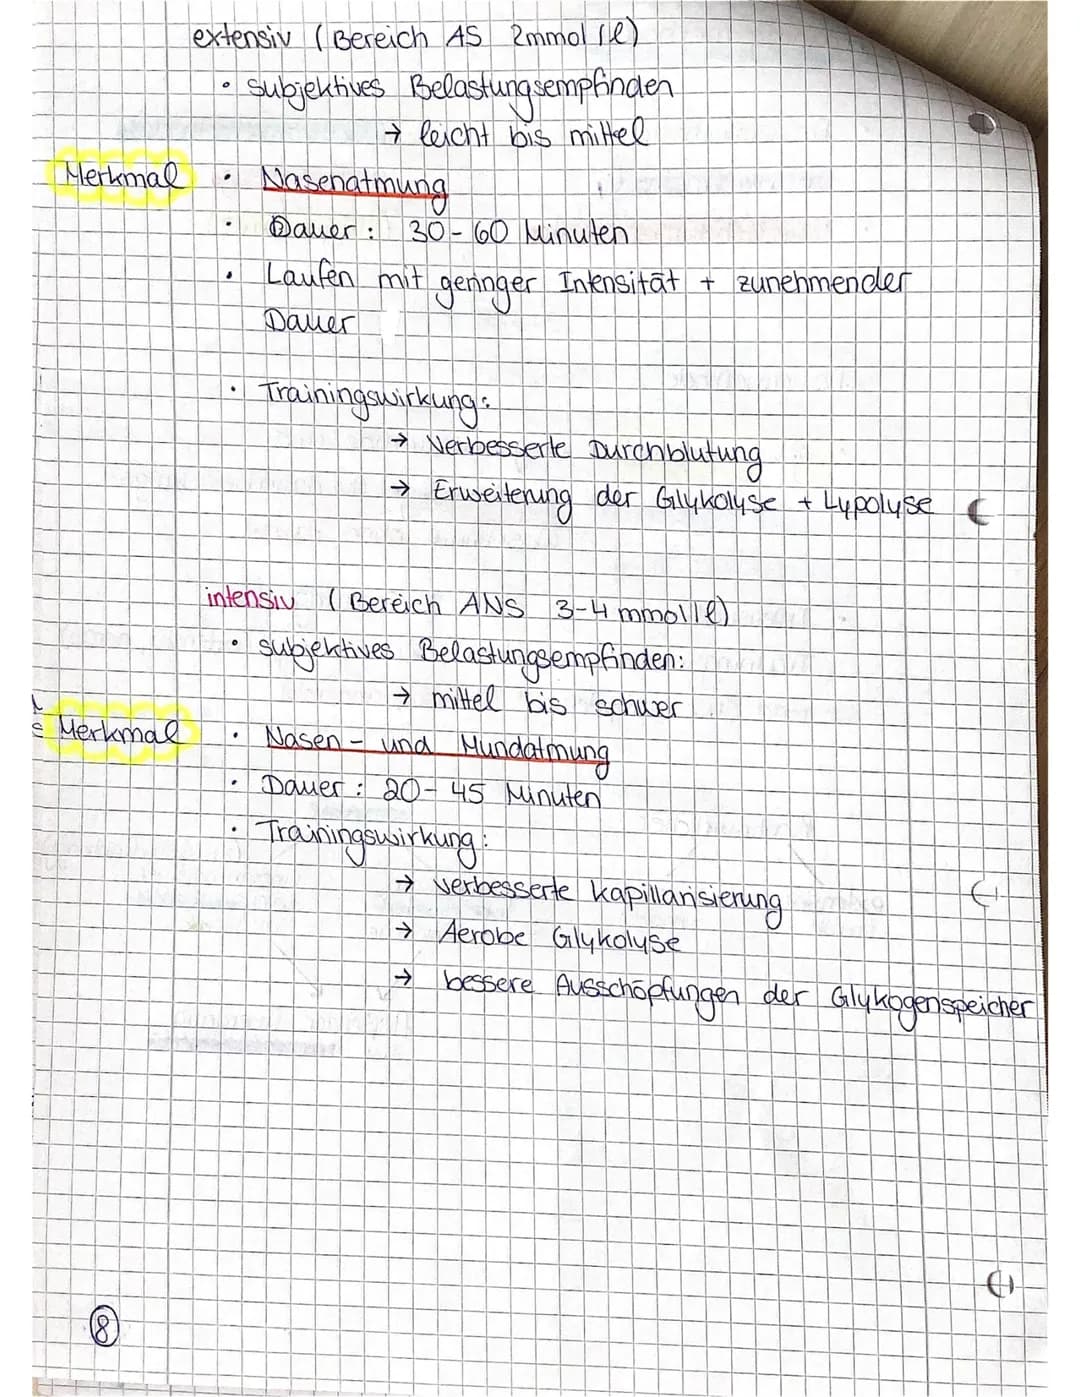 extensiv (Bereich AS 2mmol/l)
• subjektives Belastungsempfinden
→ leicht bis mittel
Merkmal • Nasenatmung
• Dauer: 30-60 Minuten
• Laufen mit geringer Intensität + zunehmender
Dauer
• Trainingswirkung:
→ Verbesserte Durchblutung
→ Erweiterung der Glykolyse + Lypolyse
intensiv (Bereich ANS 3-4 mmol/l)
• subjektives Belastungsempfinden:
→ mittel bis schwer
Merkmal • Nasen- und Mundatmung
• Dauer: 20-45 Minuten
• Trainingswirkung:
→ verbesserte Kapillarisierung
→ Aerobe Glykolyse
→ bessere Ausschöpfungen der Glykogenspeicher
8